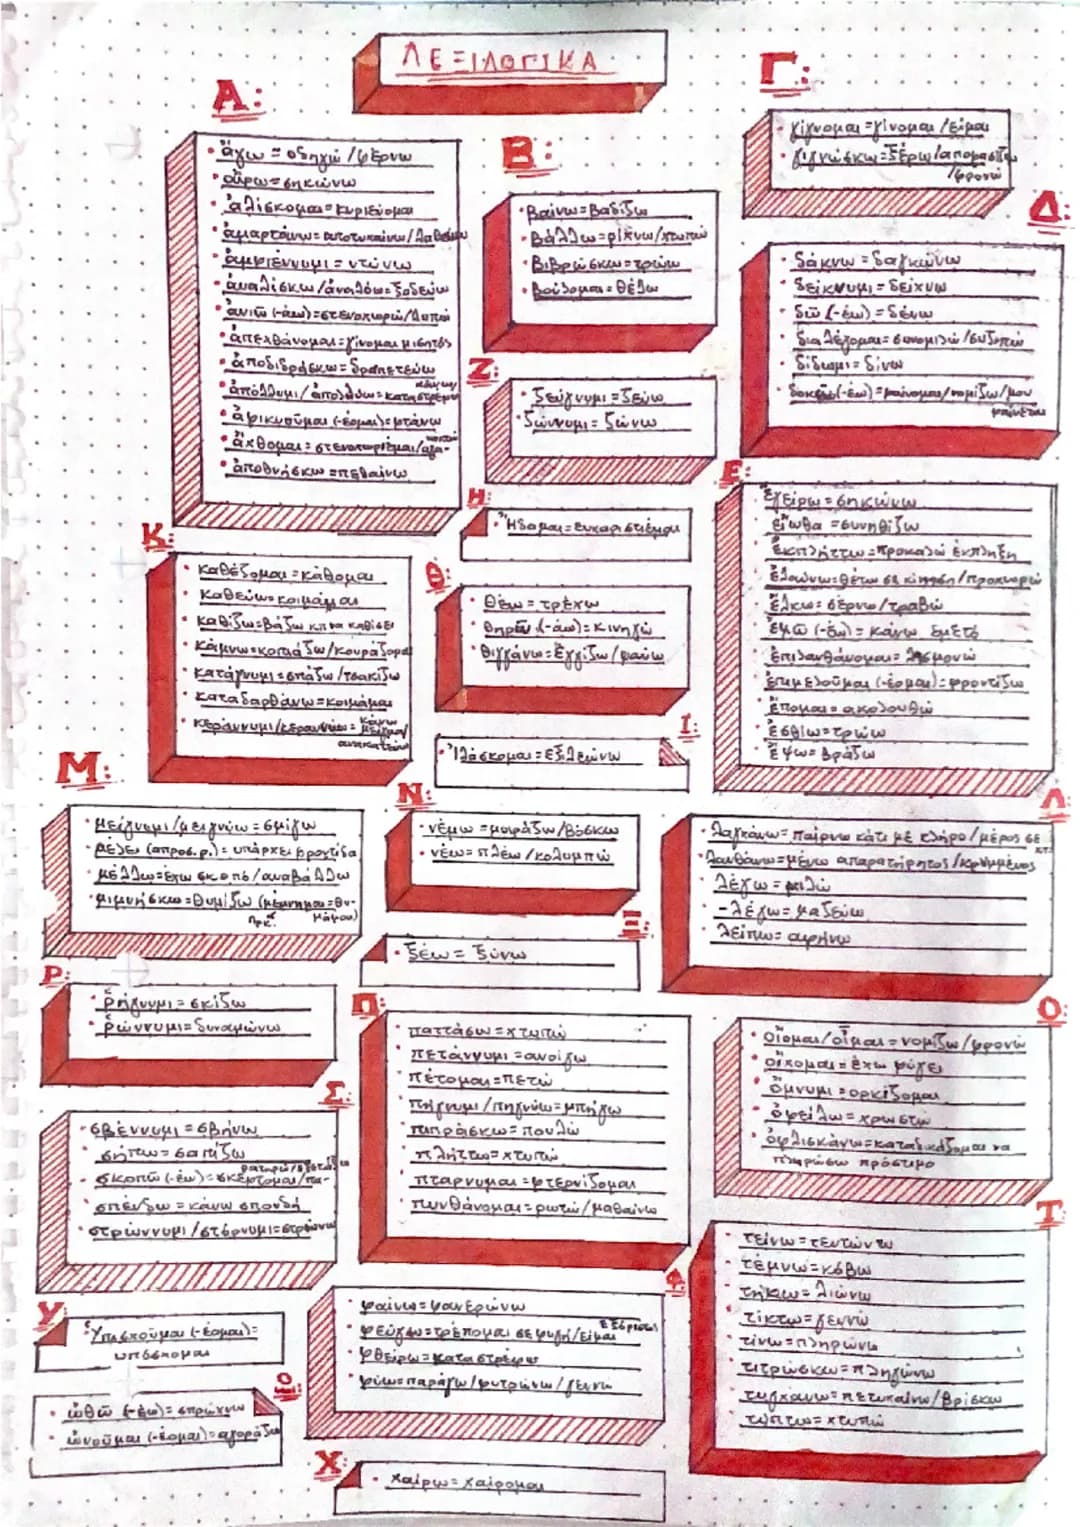 ΛΕΞΙΛΟΓΙΚΑ
Α:
ἄγω = οδηγώ / φέρνω
αἴρω = σηκώνω
ἁλίσκομαι = κυριεύομαι
ἁμαρτάνω = αποτυχαίνω / λαθεύω
ἀμφιέννυμι = ντύνω
ἀναλίσκω / ἀναλόω = ξοδεύω
ἀνιῶ (-άω) = στενοχωρώ / λυπώ
ἀπεχθάνομαι = γίνομαι μισητός
ἀποδιδράσκω = δραπετεύω
ἀπόλλυμι / ἀπολλύω = καταστρέφω
ἀφικνοῦμαι (-έομαι) = φτάνω
ἄχθομαι = στενοχωριέμαι /
ἀποθνήσκω = πεθαίνω
Β:
βαίνω = βαδίζω
βάλλω = ρίχνω / χτυπώ
βιβρώσκω = τρώω
βούλομαι = θέλω
Γ:
γίγνομαι = γίνομαι / είμαι
γιγνώσκω = ξέρω / αποφασίζω
/ φρονώ
Δ:
δάκνω = δαγκώνω
δείκνυμι = δείχνω
δῶ (-έω) = δένω
διαλέγομαι = συνομιλώ / συζητώ
δίδωμι = δίνω
δοκῶ (-έω) = φαίνομαι / νομίζω / μου
φαίνεται
Ζ:
ζεύγνυμι = ζεύω
ζώννυμι = ζώνω
Ε:
ἐγείρω = σηκώνω
εἴωθα = συνηθίζω
ἐκπλήττω = προκαλώ έκπληξη
ἐλαύνω = θέτω σε κίνηση / προχωρώ
ἕλκω = σέρνω / τραβώ
ἐμῶ (-έω) = κάνω εμετό
ἐπιλανθάνομαι = λησμονώ
ἐπιμελοῦμαι (-έομαι) = φροντίζω
ἕπομαι = ακολουθώ
ἐσθίω = τρώω
ἕψω = βράζω
Η:
Ἥδομαι = ευχαριστιέμαι
Θ:
θέω = τρέχω
θηρῶ (-άω) = κινηγώ
θιγγάνω = εγγίζω / ψαύω
Ι:
Ἱλάσκομαι = εξιλεώνω
Κ:
καθέζομαι = κάθομαι
καθεύδω = κοιμάμαι
καθίζω = βάζω κπ να καθίσει
κάμνω = κοπιάζω / κουράζομαι
κατάγνυμι = σπάζω / τσακίζω
καταδαρθάνω = κοιμάμαι
κεράννυμι / κεραννύω = κάνω
μείγμα /
ανακατεύω
Λ:
λαγχάνω = παίρνω κάτι με κλήρο / μέρος σε
κτ
λανθάνω = μένω απαρατήρητος / κρυμμένος
λέγω = μιλώ
-λέγω = μαζεύω
λείπω = αφήνω
Μ:
μείγνυμι / μειγνύω = σμίγω
μέλει (απροσ. ρ.) = υπάρχει φροντίδα
μέλλω = έχω σκοπό / αναβάλλω
μιμνήσκω = θυμίζω (μέμνημαι = θυ-
Πρκ. μάμαι)
Ν:
νέμω = μοιράζω / βόσκω
νέω = πλέω / κολυμπώ
Ξ:
ξέω = ξύνω
Ο:
οἴομαι / οἶμαι = νομίζω / φρονώ
οἴχομαι = έχω φύγει
ὄμνυμι = ορκίζομαι
ὀφείλω = χρωστώ
ὀφλισκάνω = καταδικάζομαι να
πληρώσω πρόστιμο
Π:
πατάσσω = χτυπώ
πετάννυμι = ανοίγω
πέτομαι = πετώ
πήγνυμι / πηγνύω = μπήγω
πιπράσκω = πουλώ
πλήττω = χτυπώ
πτάρνυμαι = φτερνίζομαι
πυνθάνομαι = ρωτώ / μαθαίνω
Ρ:
ῥήγνυμι = σκίζω
ῥώννυμι = δυναμώνω
Σ:
σβέννυμι = σβήνω
σήπω = σαπίζω
σκοπῶ (-έω) = σκέφτομαι / πα-
ρατηρώ / εξετάζω
σπένδω = κάνω σπονδή
στρώννυμι / στόρνυμι = στρώνω
Τ:
τείνω = τεντώνω
τέμνω = κόβω
τήκω = λιώνω
τίκτω = γεννώ
τίνω = πληρώνω
τιτρώσκω = πληγώνω
τυγχάνω = πετυχαίνω / βρίσκω
τύπτω = χτυπώ
Υ:
Ὑπισχνοῦμαι (-έομαι) =
υπόσχομαι
Φ:
φαίνω = φανερώνω
φεύγω = τρέπομαι σε φυγή / είμαι
εξόριστος
φθείρω = καταστρέφω
φύω = παράγω / φυτρώνω / γεννώ
Χ:
χαίρω = χαίρομαι
ὠθῶ (-έω) = σπρώχνω
ὠνοῦμαι (-έομαι) = αγοράζω